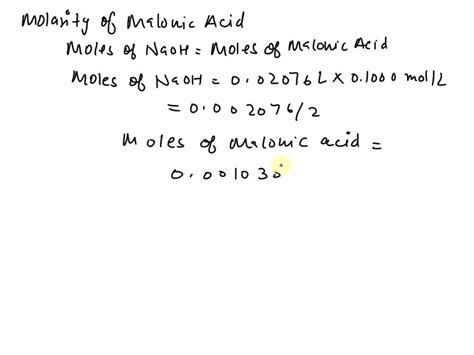 Molarity of Malonic Acid
Moles of NaOH = Moles of Malonic Acid
Moles of NaOH = 0.02076 L × 0.1000 mol/L
= 0.002076/2
Moles of malonic acid =
0.001030